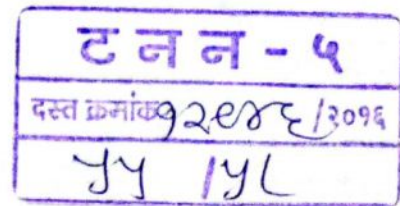 ट न न - ५
दस्त क्रमांक १२९४६/२०१६
५५ /५८